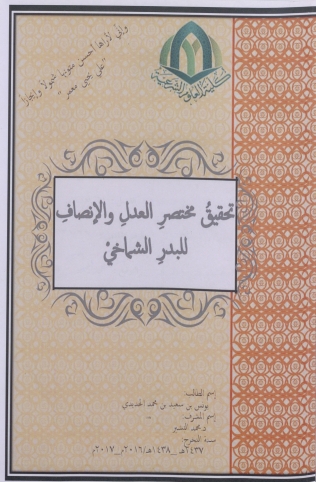 وإني لأراها أحسن متونها شمولا وإيجازا
"علي يحيى معمر"
كلية العلوم الشرعية
تحقيقُ مختصرِ العدلِ والإنصافِ
للبدرِ الشماخيْ
إسم الطالب:
يونس بن سعيد بن محمد الجديدي
إسم المشرف:
د.محمد
سنة التخرج:
٢٤٣٧هـ _١٤٣٨هـ/٢٠١٦م_٢٠١٧م